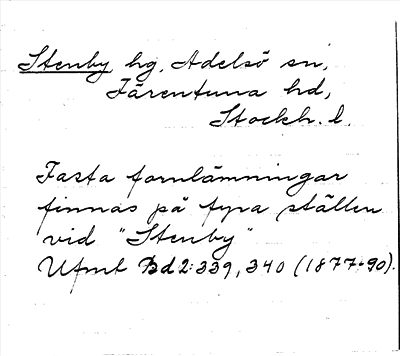 Stenby hg, Adelsö sn,
Färentuna hd,
Stockh. l.
Fasta fornlämningar
finnas på fyra ställen
vid "Stenby"
Ufmt Bd 2:339, 340 (1877-90).